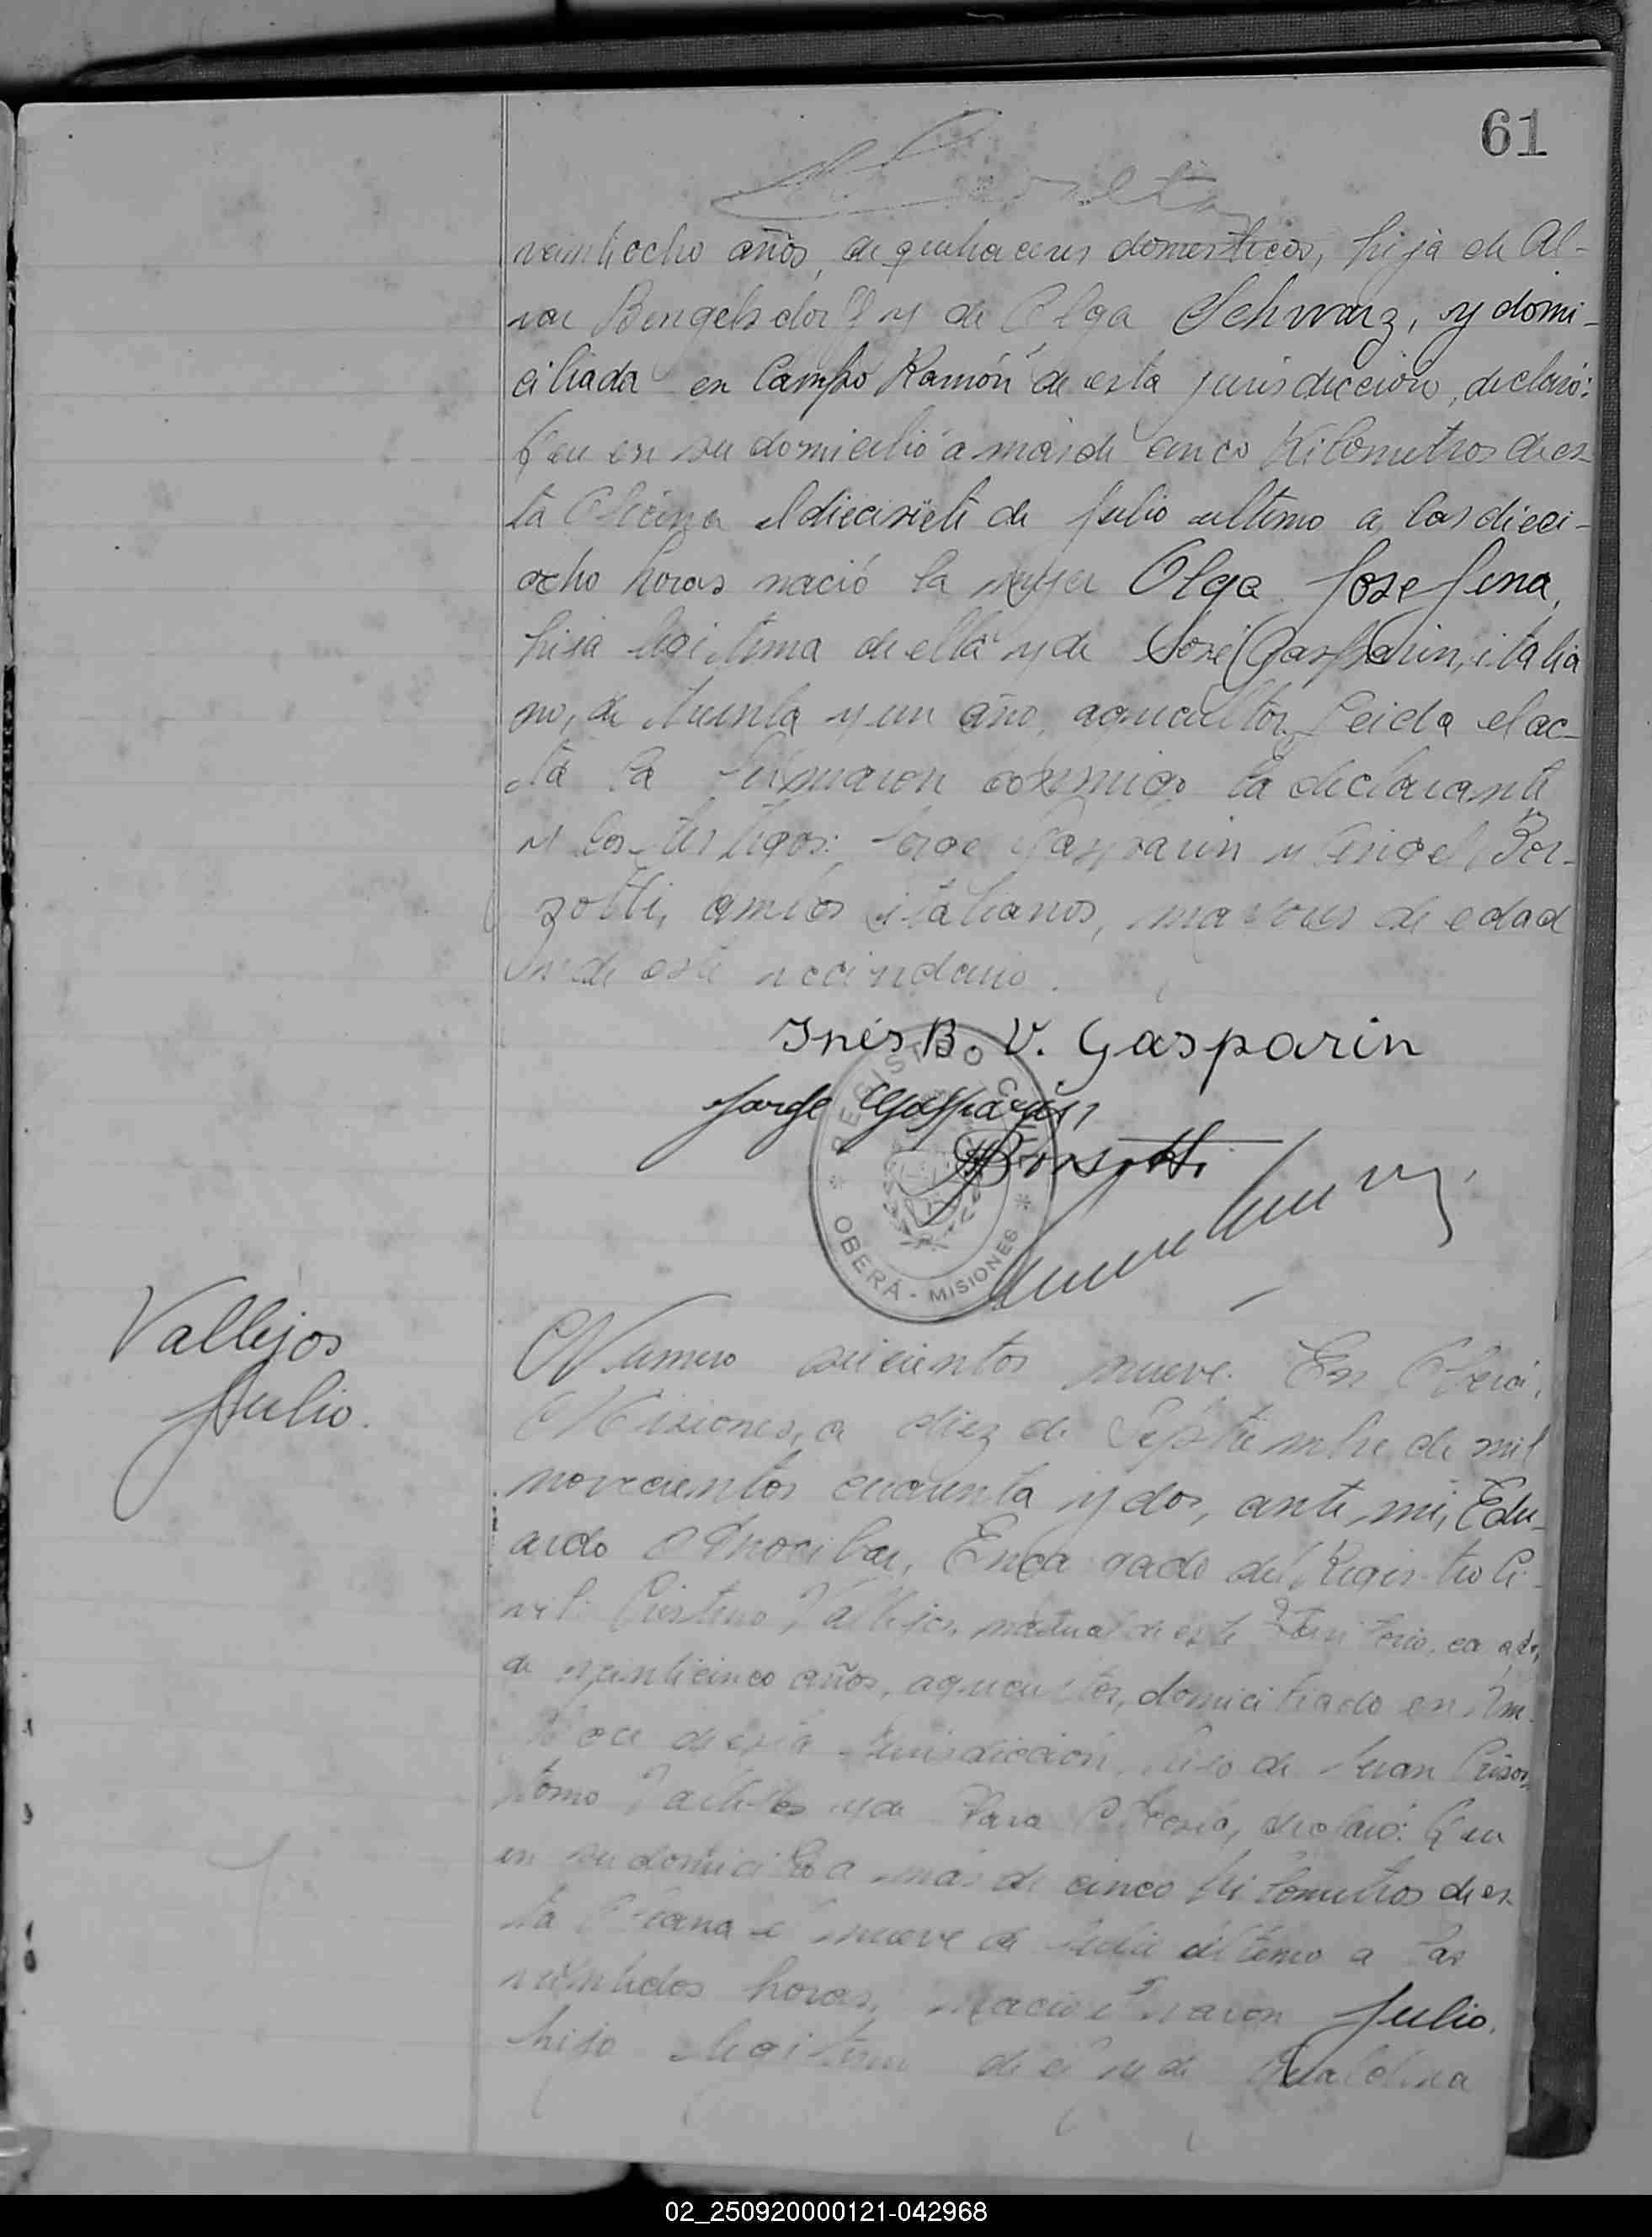 61
veintiocho años, de quehaceres domesticos, hija de Al-
var Bengelsdorff y de Olga Schwarz, y domi-
ciliada en Campo Ramón de esta jurisdicción, declaró:
Que en su domicilio a más de cinco kilometros de es-
ta Oficina el diecisiete de julio ultimo a las dieci-
ocho horas nació la mujer Olga Josefina,
hija legitima de ella y de José Gasparin, italia
no, de treinta y un año, agricultor. Leida el ac-
ta la firmaron conmigo la declarante
y los testigos: Jorge Gasparin y Angel Bor-
zotti, ambos italianos, mayores de edad
y de este vecindario.
Inés B. V. Gasparin
Jorge Gasparin
Borsotti
REGISTRO CIVIL
* OBERÁ - MISIONES *
Vallejos
Julio.
Numero seicientos nueve. En Oberá,
Misiones, a diez de Septiembre de mil
novecientos cuarenta y dos, ante mi, Edu-
ardo Encargado del Registro Ci-
vil: Vallejos, natural de este Territorio, casado,
de veinticinco años, agricultor, domiciliado en
de esta jurisdicción, hijo de Juan Crisós
tomo Vallejos y de declaró: Que
en su domicilio a más de cinco kilometros de es
ta Oficina el nueve de julio último a las
veintidos horas, nació el varon Julio,
hijo legitimo de él y de
02_250920000121-042968